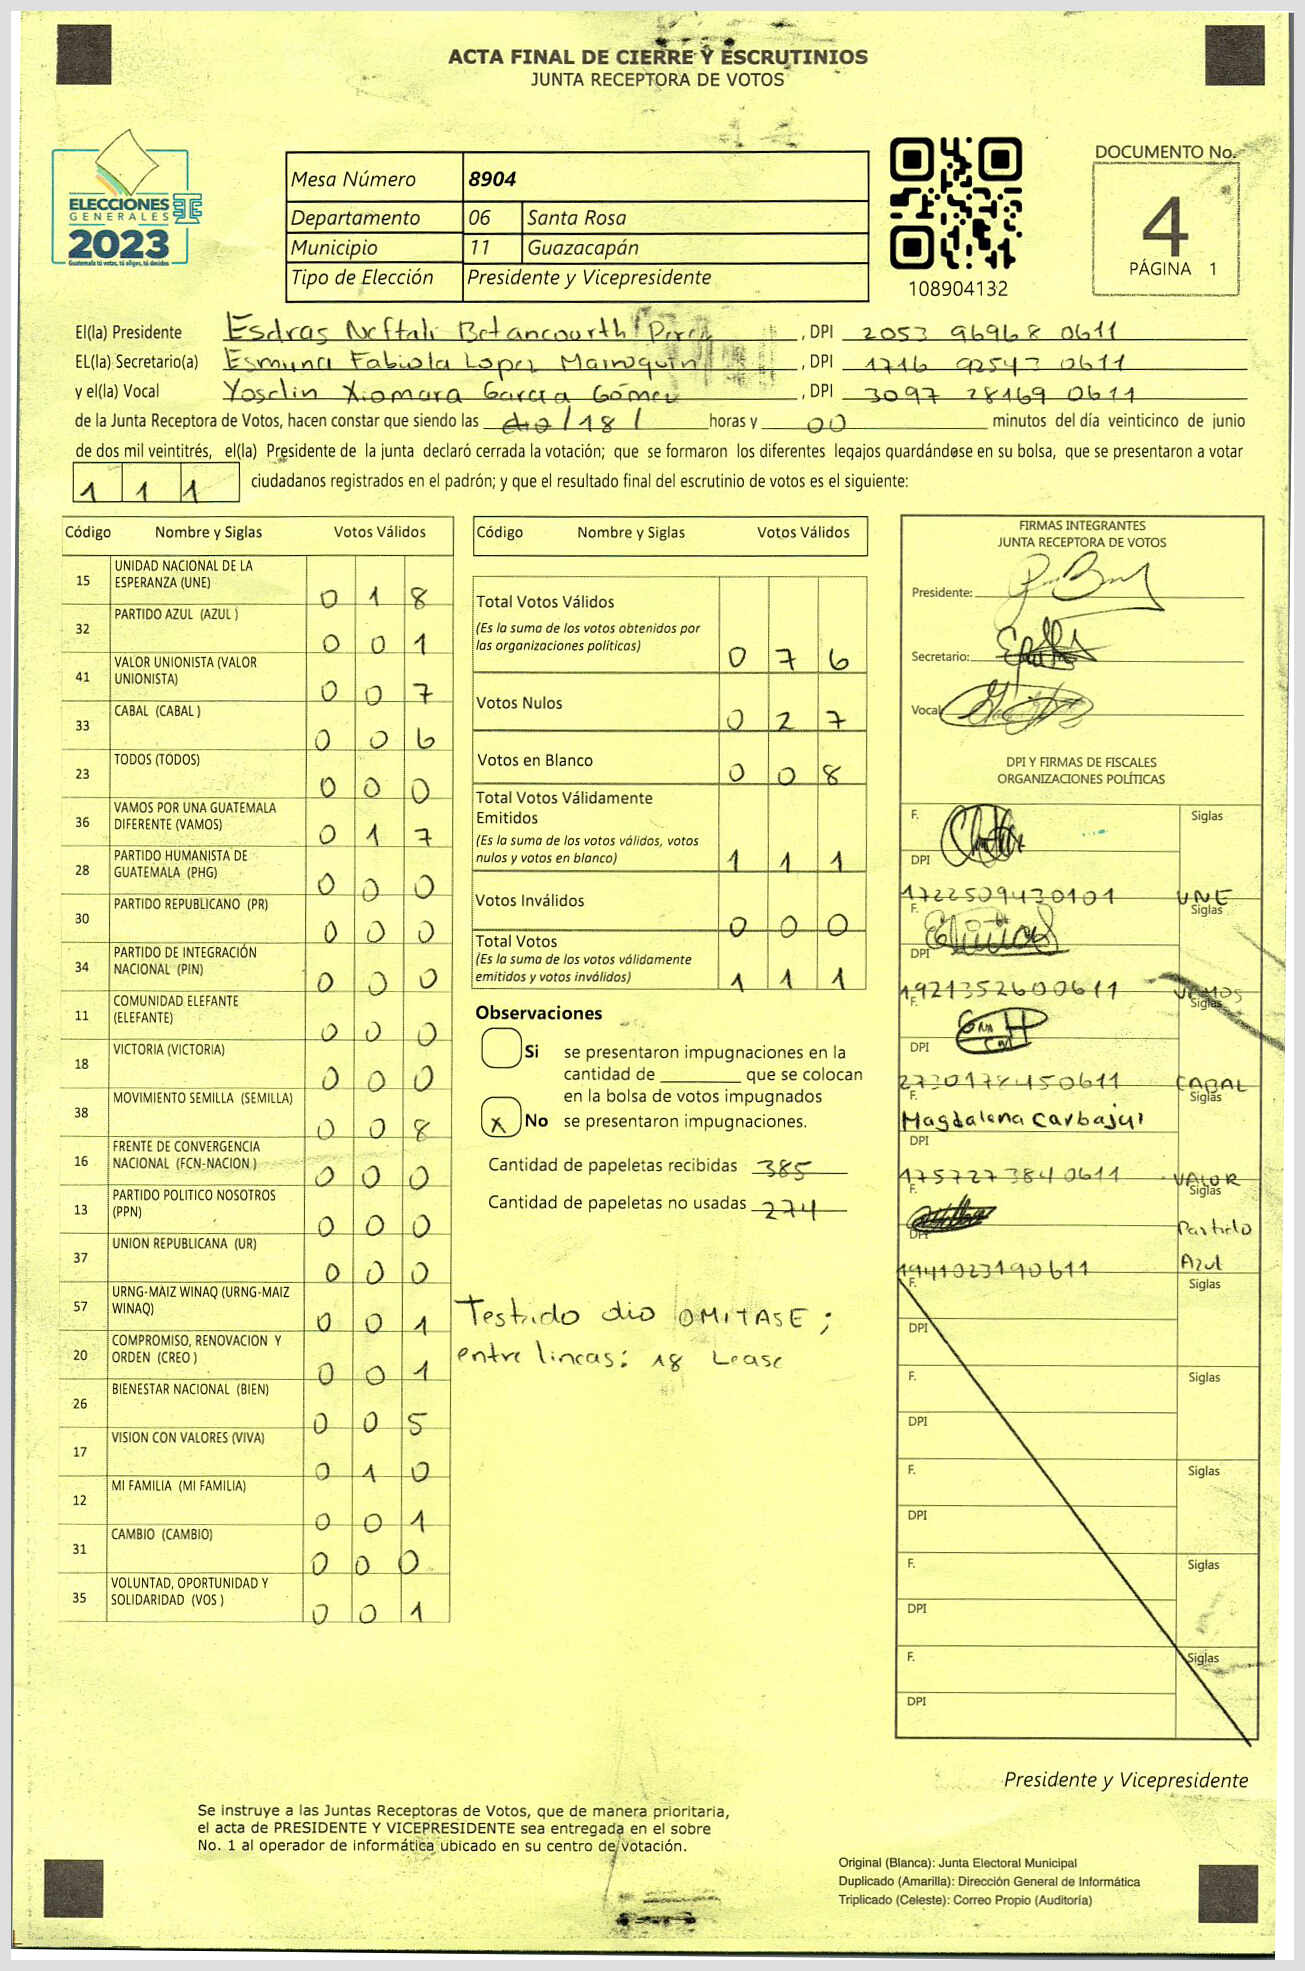 ACTA FINAL DE CIERRE Y ESCRUTINIOS
JUNTA RECEPTORA DE VOTOS
ELECCIONES
GENERALES
2023
Guatemala tú votas, tú eliges, tú decides
Mesa Número 8904
Departamento 06 Santa Rosa
Municipio 11 Guazacapán
Tipo de Elección Presidente y Vicepresidente
108904132
DOCUMENTO No.
4
PÁGINA 1
El(la) Presidente Esdras Neftali Betancourth Perez, DPI 2053 96968 0611
EL(la) Secretario(a) Esmyna Fabiola Lopez Marroquin, DPI 1716 92543 0611
y el(la) Vocal Yoselin Xiomara Garcia Gómez, DPI 3097 28169 0611
de la Junta Receptora de Votos, hacen constar que siendo las dio /18/ horas y 00 minutos del día veinticinco de junio
de dos mil veintitrés, el(la) Presidente de la junta declaró cerrada la votación; que se formaron los diferentes legajos guardándose en su bolsa, que se presentaron a votar
1 1 1 ciudadanos registrados en el padrón; y que el resultado final del escrutinio de votos es el siguiente:
Código Nombre y Siglas Votos Válidos
15 UNIDAD NACIONAL DE LA ESPERANZA (UNE) 0 1 8
32 PARTIDO AZUL (AZUL ) 0 0 1
41 VALOR UNIONISTA (VALOR UNIONISTA) 0 0 7
33 CABAL (CABAL ) 0 0 6
23 TODOS (TODOS) 0 0 0
36 VAMOS POR UNA GUATEMALA DIFERENTE (VAMOS) 0 1 7
28 PARTIDO HUMANISTA DE GUATEMALA (PHG) 0 0 0
30 PARTIDO REPUBLICANO (PR) 0 0 0
34 PARTIDO DE INTEGRACIÓN NACIONAL (PIN) 0 0 0
11 COMUNIDAD ELEFANTE (ELEFANTE) 0 0 0
18 VICTORIA (VICTORIA) 0 0 0
38 MOVIMIENTO SEMILLA (SEMILLA) 0 0 8
16 FRENTE DE CONVERGENCIA NACIONAL (FCN-NACION ) 0 0 0
13 PARTIDO POLITICO NOSOTROS (PPN) 0 0 0
37 UNION REPUBLICANA (UR) 0 0 0
57 URNG-MAIZ WINAQ (URNG-MAIZ WINAQ) 0 0 1
20 COMPROMISO, RENOVACION Y ORDEN (CREO ) 0 0 1
26 BIENESTAR NACIONAL (BIEN) 0 0 5
17 VISION CON VALORES (VIVA) 0 1 0
12 MI FAMILIA (MI FAMILIA) 0 0 1
31 CAMBIO (CAMBIO) 0 0 0
35 VOLUNTAD, OPORTUNIDAD Y SOLIDARIDAD (VOS ) 0 0 1
Código Nombre y Siglas Votos Válidos
Total Votos Válidos
(Es la suma de los votos obtenidos por
las organizaciones políticas) 0 7 6
Votos Nulos 0 2 7
Votos en Blanco 0 0 8
Total Votos Válidamente
Emitidos
(Es la suma de los votos válidos, votos
nulos y votos en blanco) 1 1 1
Votos Inválidos 0 0 0
Total Votos
(Es la suma de los votos válidamente
emitidos y votos inválidos) 1 1 1
Observaciones
Si se presentaron impugnaciones en la
cantidad de ________ que se colocan
en la bolsa de votos impugnados
x No se presentaron impugnaciones.
Cantidad de papeletas recibidas 385
Cantidad de papeletas no usadas 274
Testado dio OMITASE ;
entre lineas: 18 Lease
FIRMAS INTEGRANTES
JUNTA RECEPTORA DE VOTOS
Presidente:
Secretario:
Vocal
DPI Y FIRMAS DE FISCALES
ORGANIZACIONES POLÍTICAS
F. Siglas
DPI
1722509430101 UNE
F. Siglas
DPI
1921352600611 VAMOS
F. Siglas
DPI
2730178450611 CABAL
F. Siglas
Magdalena Carbajal
DPI
1757273840611 VALOR
F. Siglas
DPI Partido
1941023190611 Azul
F. Siglas
DPI
F. Siglas
DPI
F. Siglas
DPI
F. Siglas
DPI
F. Siglas
DPI
Presidente y Vicepresidente
Se instruye a las Juntas Receptoras de Votos, que de manera prioritaria,
el acta de PRESIDENTE Y VICEPRESIDENTE sea entregada en el sobre
No. 1 al operador de informática ubicado en su centro de votación.
Original (Blanca): Junta Electoral Municipal
Duplicado (Amarilla): Dirección General de Informática
Triplicado (Celeste): Correo Propio (Auditoría)